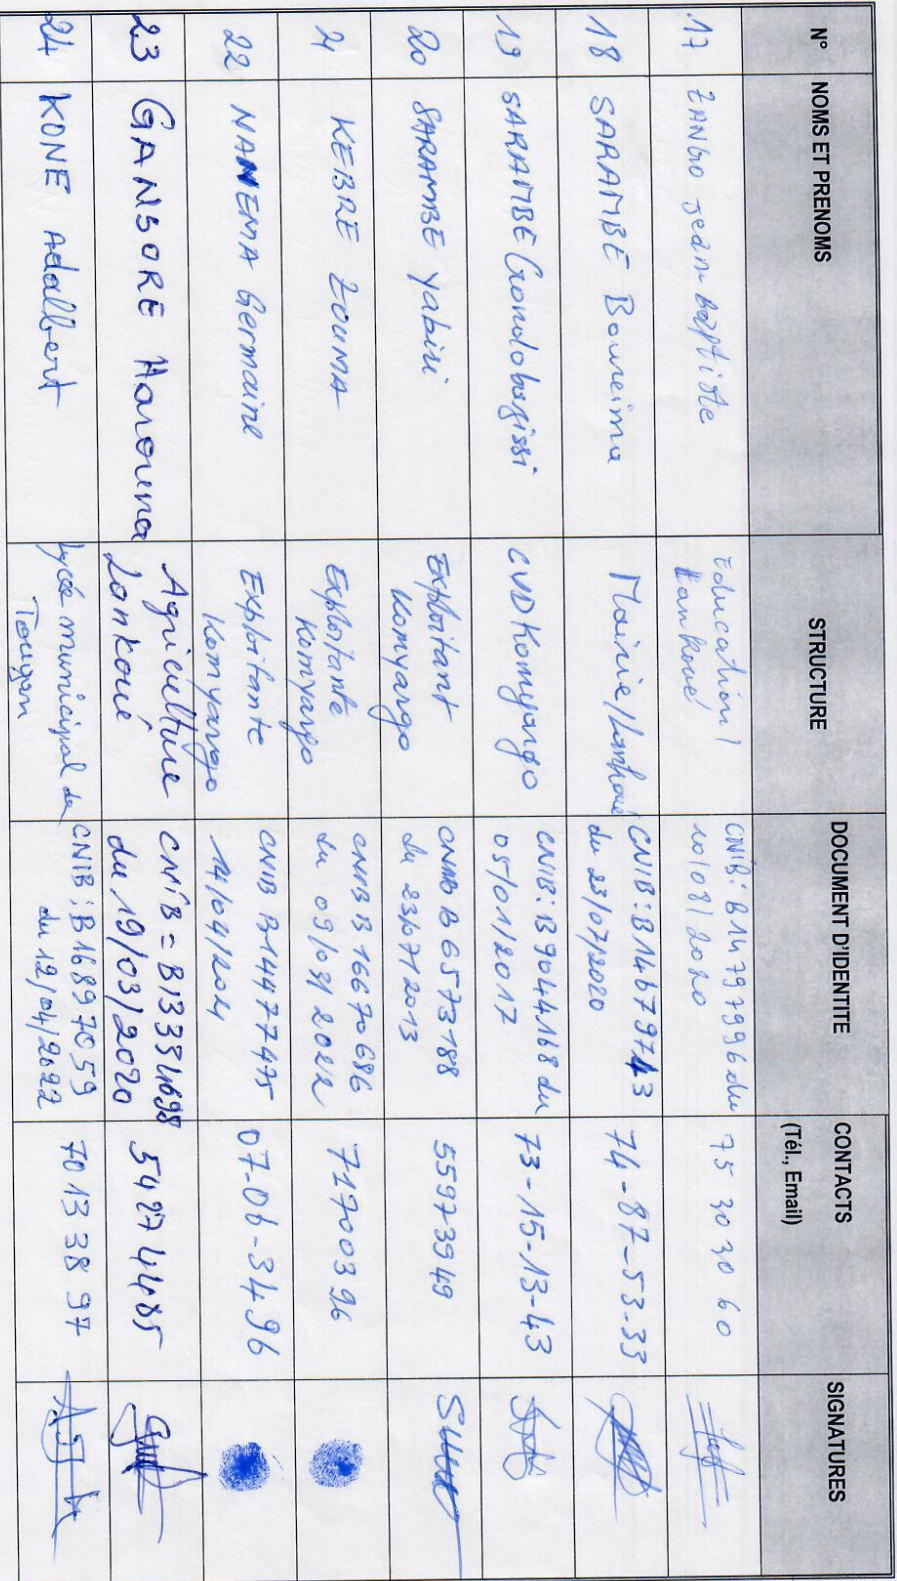 N° NOMS ET PRENOMS STRUCTURE DOCUMENT D'IDENTITE CONTACTS (Tél., Email) SIGNATURES
17 ZANGO Jean Baptiste Education / Lankoué CNIB: B14797996 du 10/08/2020 75 30 30 60
18 SARAMBE Boureima Mairie/Lankoué CNIB: B14679743 du 23/07/2020 74-87-53-33
19 SARAMBE CVD Komyargo CNIB: B9044168 du 05/01/2017 73-15-13-43
20 SARAMBE Yabiri Exploitant Komyargo CNIB B6573188 du 23/07/2013 55973949
21 KEBRE ZOUMA Exploitante Komyargo CNIB B16670686 du 2022 71700396
22 NANEMA Germaine Exploitante Komyargo CNIB B14477475 07-06-34-96
23 GANSORE Harouna Agriculture Lankoué CNIB = B13334698 du 19/03/2020 54274485
24 KONE Adalbert Lycée municipal de Tougan CNIB: B16897059 du 12/04/2022 70 13 38 97